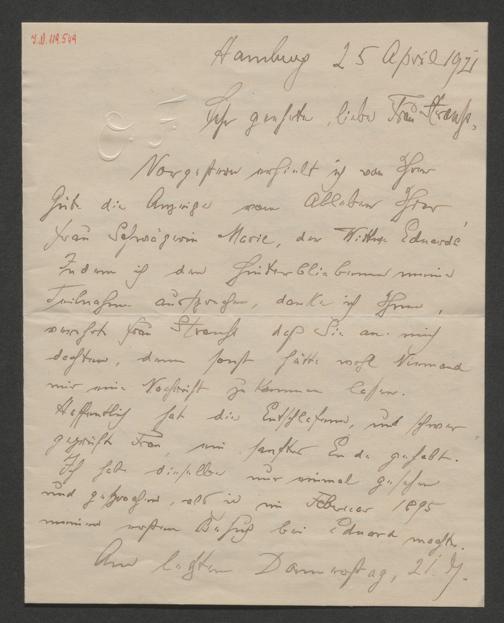 I.N. 119.549
Hamburg 25 April 1921
Sehr geehrte, liebe Frau Strauß,
Vorgestern erhielt ich von Ihrer
Güte die Anzeige vom Ableben Ihrer
Frau Schwägerin Marie, der Wittwe Eduards.
Indem ich den Hinterbliebenen meine
Teilnahme ausspreche, danke ich Ihnen,
verehrte Frau Strauß daß Sie an mich
dachten, denn sonst hätte wohl Niemand
mir eine Nachricht zukommen lassen.
Hoffentlich hat die Entschlafene, und schwer
geprüfte Frau, ein sanftes Ende gehabt.
Ich habe dieselbe nur einmal gesehen
und gesprochen, als ich im Februar 1895
meinen ersten Besuch bei Eduard machte.
Am letzten Donnerstag, 21. d.